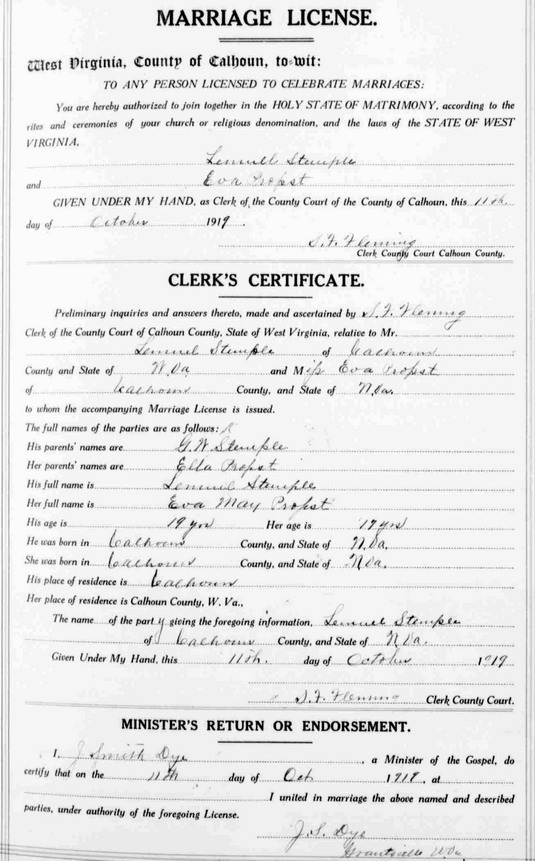 MARRIAGE LICENSE.
West Virginia, County of Calhoun, to-wit:
TO ANY PERSON LICENSED TO CELEBRATE MARRIAGES:
You are hereby authorized to join together in the HOLY STATE OF MATRIMONY, according to the
rites and ceremonies of your church or religious denomination, and the laws of the STATE OF WEST
VIRGINIA.
Lemuel Stemple
and Eva Propst
GIVEN UNDER MY HAND, as Clerk of the County Court of the County of Calhoun, this 11th.
day of October 1919.
S. F. Fleming
Clerk County Court Calhoun County.
CLERK'S CERTIFICATE.
Preliminary inquiries and answers thereto, made and ascertained by S. F. Fleming
Clerk of the County Court of Calhoun County, State of West Virginia, relative to Mr.
Lemuel Stemple of Calhoun
County and State of W. Va and Miss Eva Propst
of Calhoun County, and State of W. Va.
to whom the accompanying Marriage License is issued.
The full names of the parties are as follows:
His parents' names are G. W. Stemple
Her parents' names are Ella Propst
His full name is Lemuel Stemple
Her full name is Eva May Propst
His age is 19 yrs Her age is 19 yrs
He was born in Calhoun County, and State of W. Va.
She was born in Calhoun County, and State of W. Va.
His place of residence is Calhoun
Her place of residence is Calhoun County, W. Va.,
The name of the party giving the foregoing information, Lemuel Stemple
of Calhoun County, and State of W. Va.
Given Under My Hand, this 11th. day of October 1919
S. F. Fleming Clerk County Court.
MINISTER'S RETURN OR ENDORSEMENT.
I, J Smith Dye, a Minister of the Gospel, do
certify that on the 11th day of Oct 1919, at
I united in marriage the above named and described
parties, under authority of the foregoing License.
J. S. Dye
Grantsville W. Va